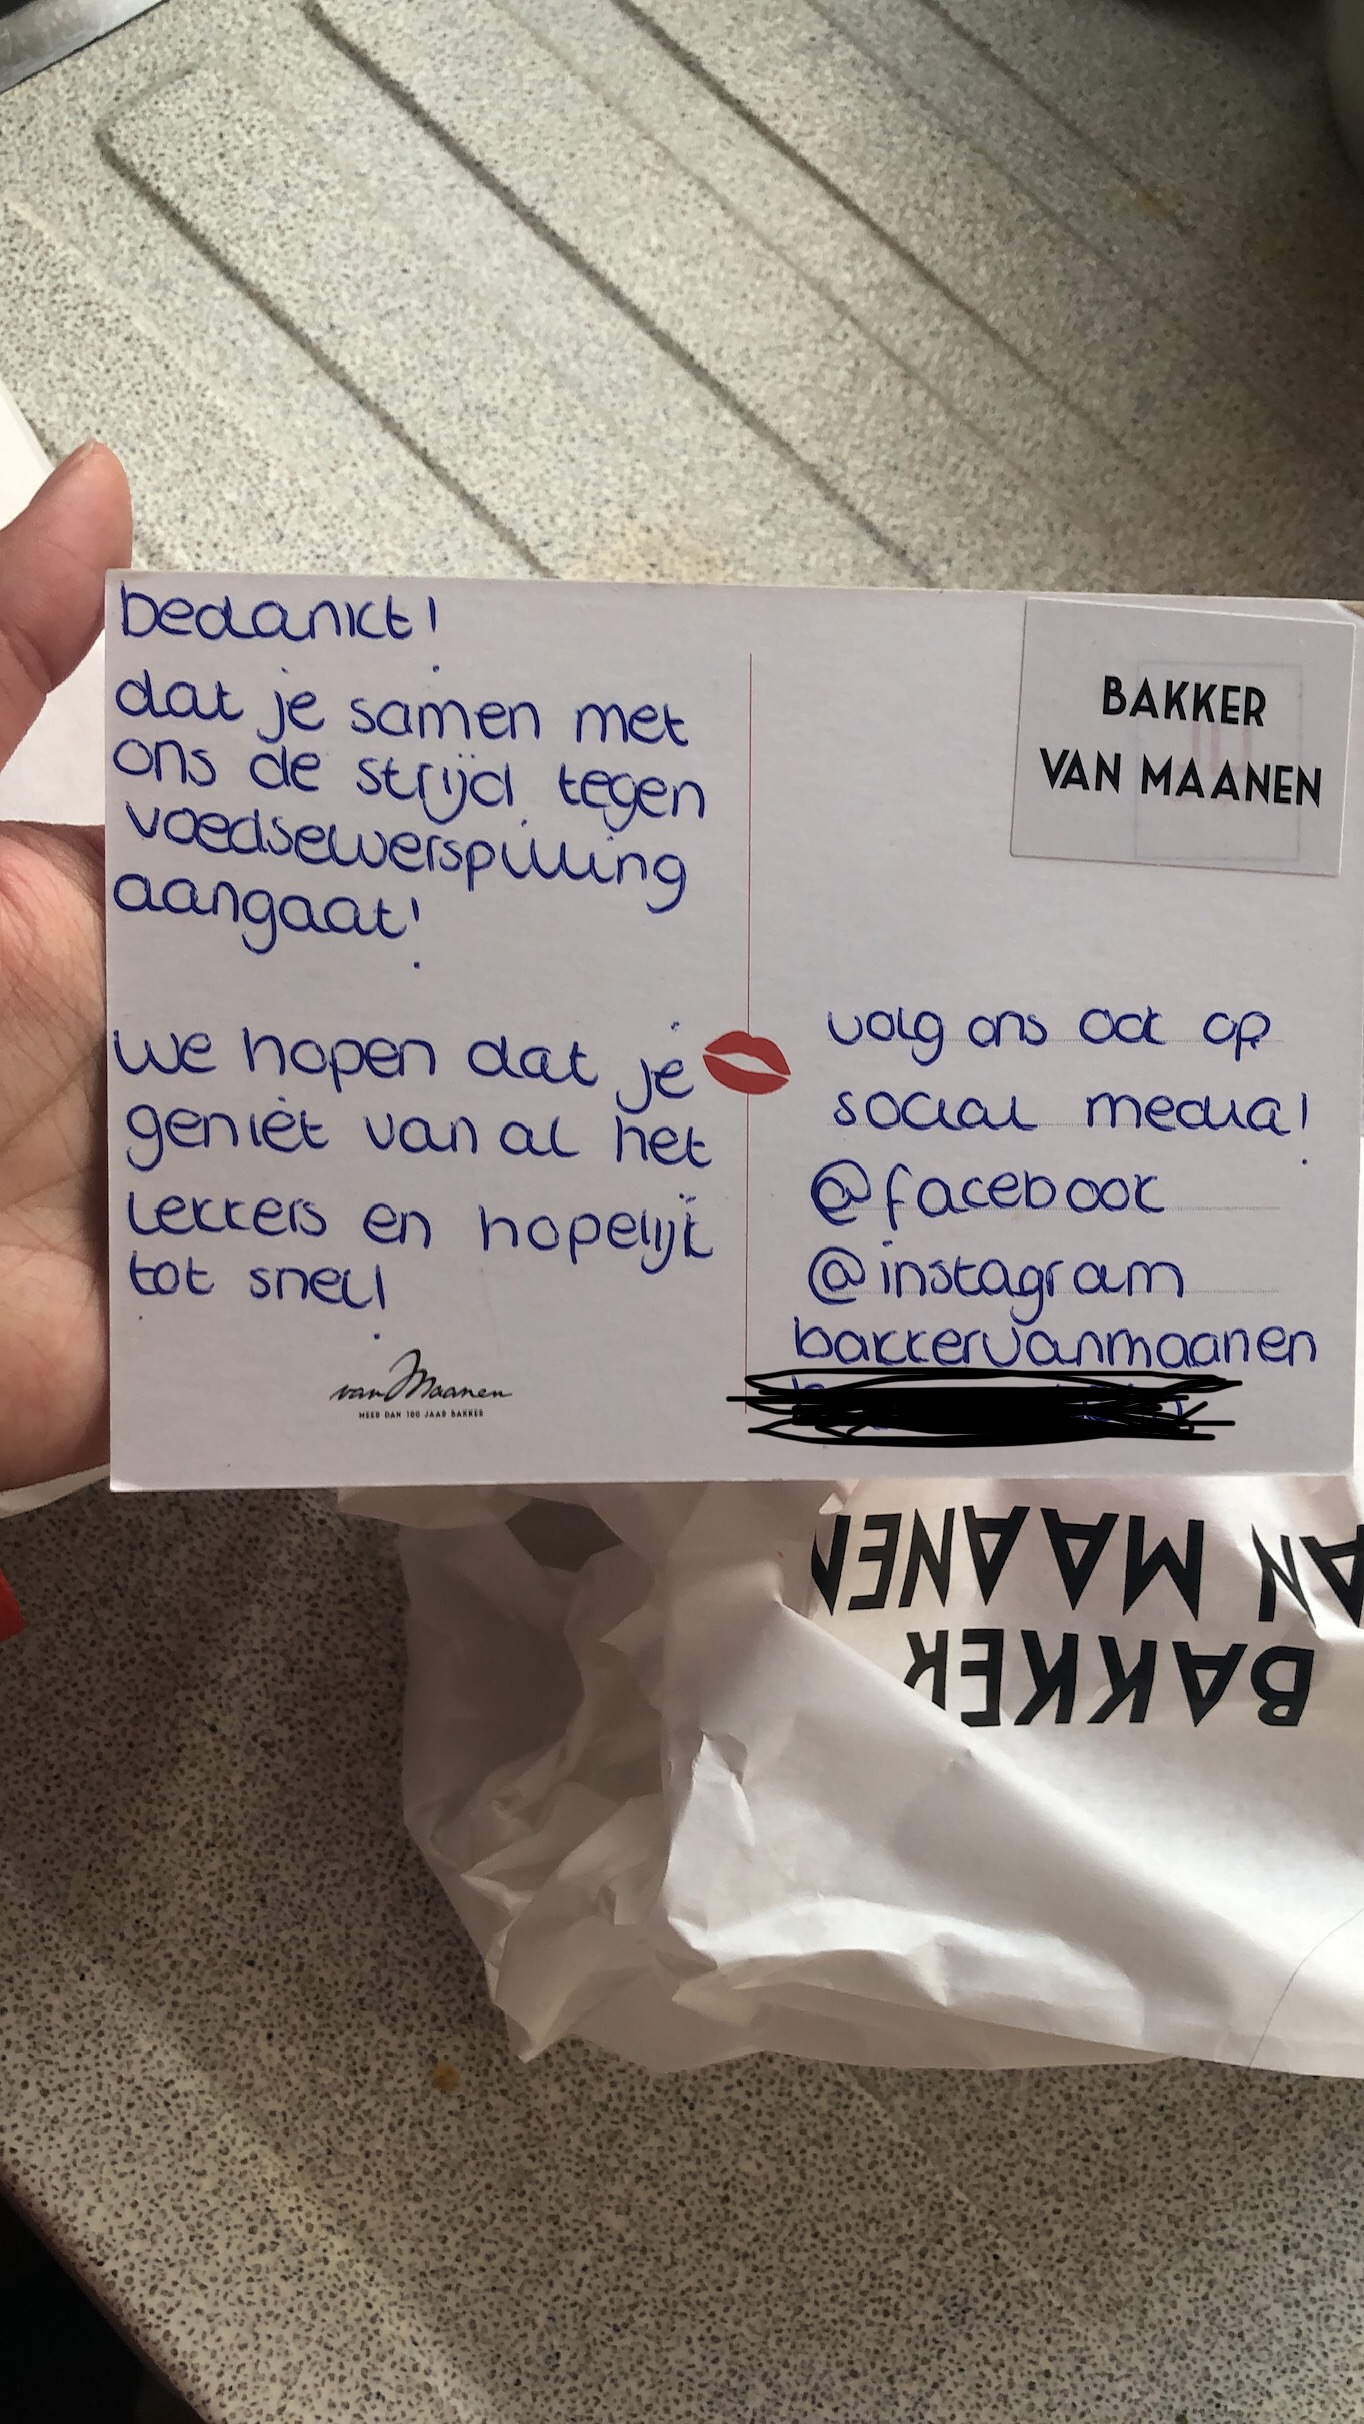 bedankt!
dat je samen met
ons de strijd tegen
voedselverspilling
aangaat!
we hopen dat je
geniet van al het
lekkers en hopelijk
tot snel!
van Maanen
MEER DAN 100 JAAR BAKKER
BAKKER
VAN MAANEN
volg ons ook op
social media!
@facebook
@instagram
bakkervanmaanen
BAKKER
VAN MAANEN